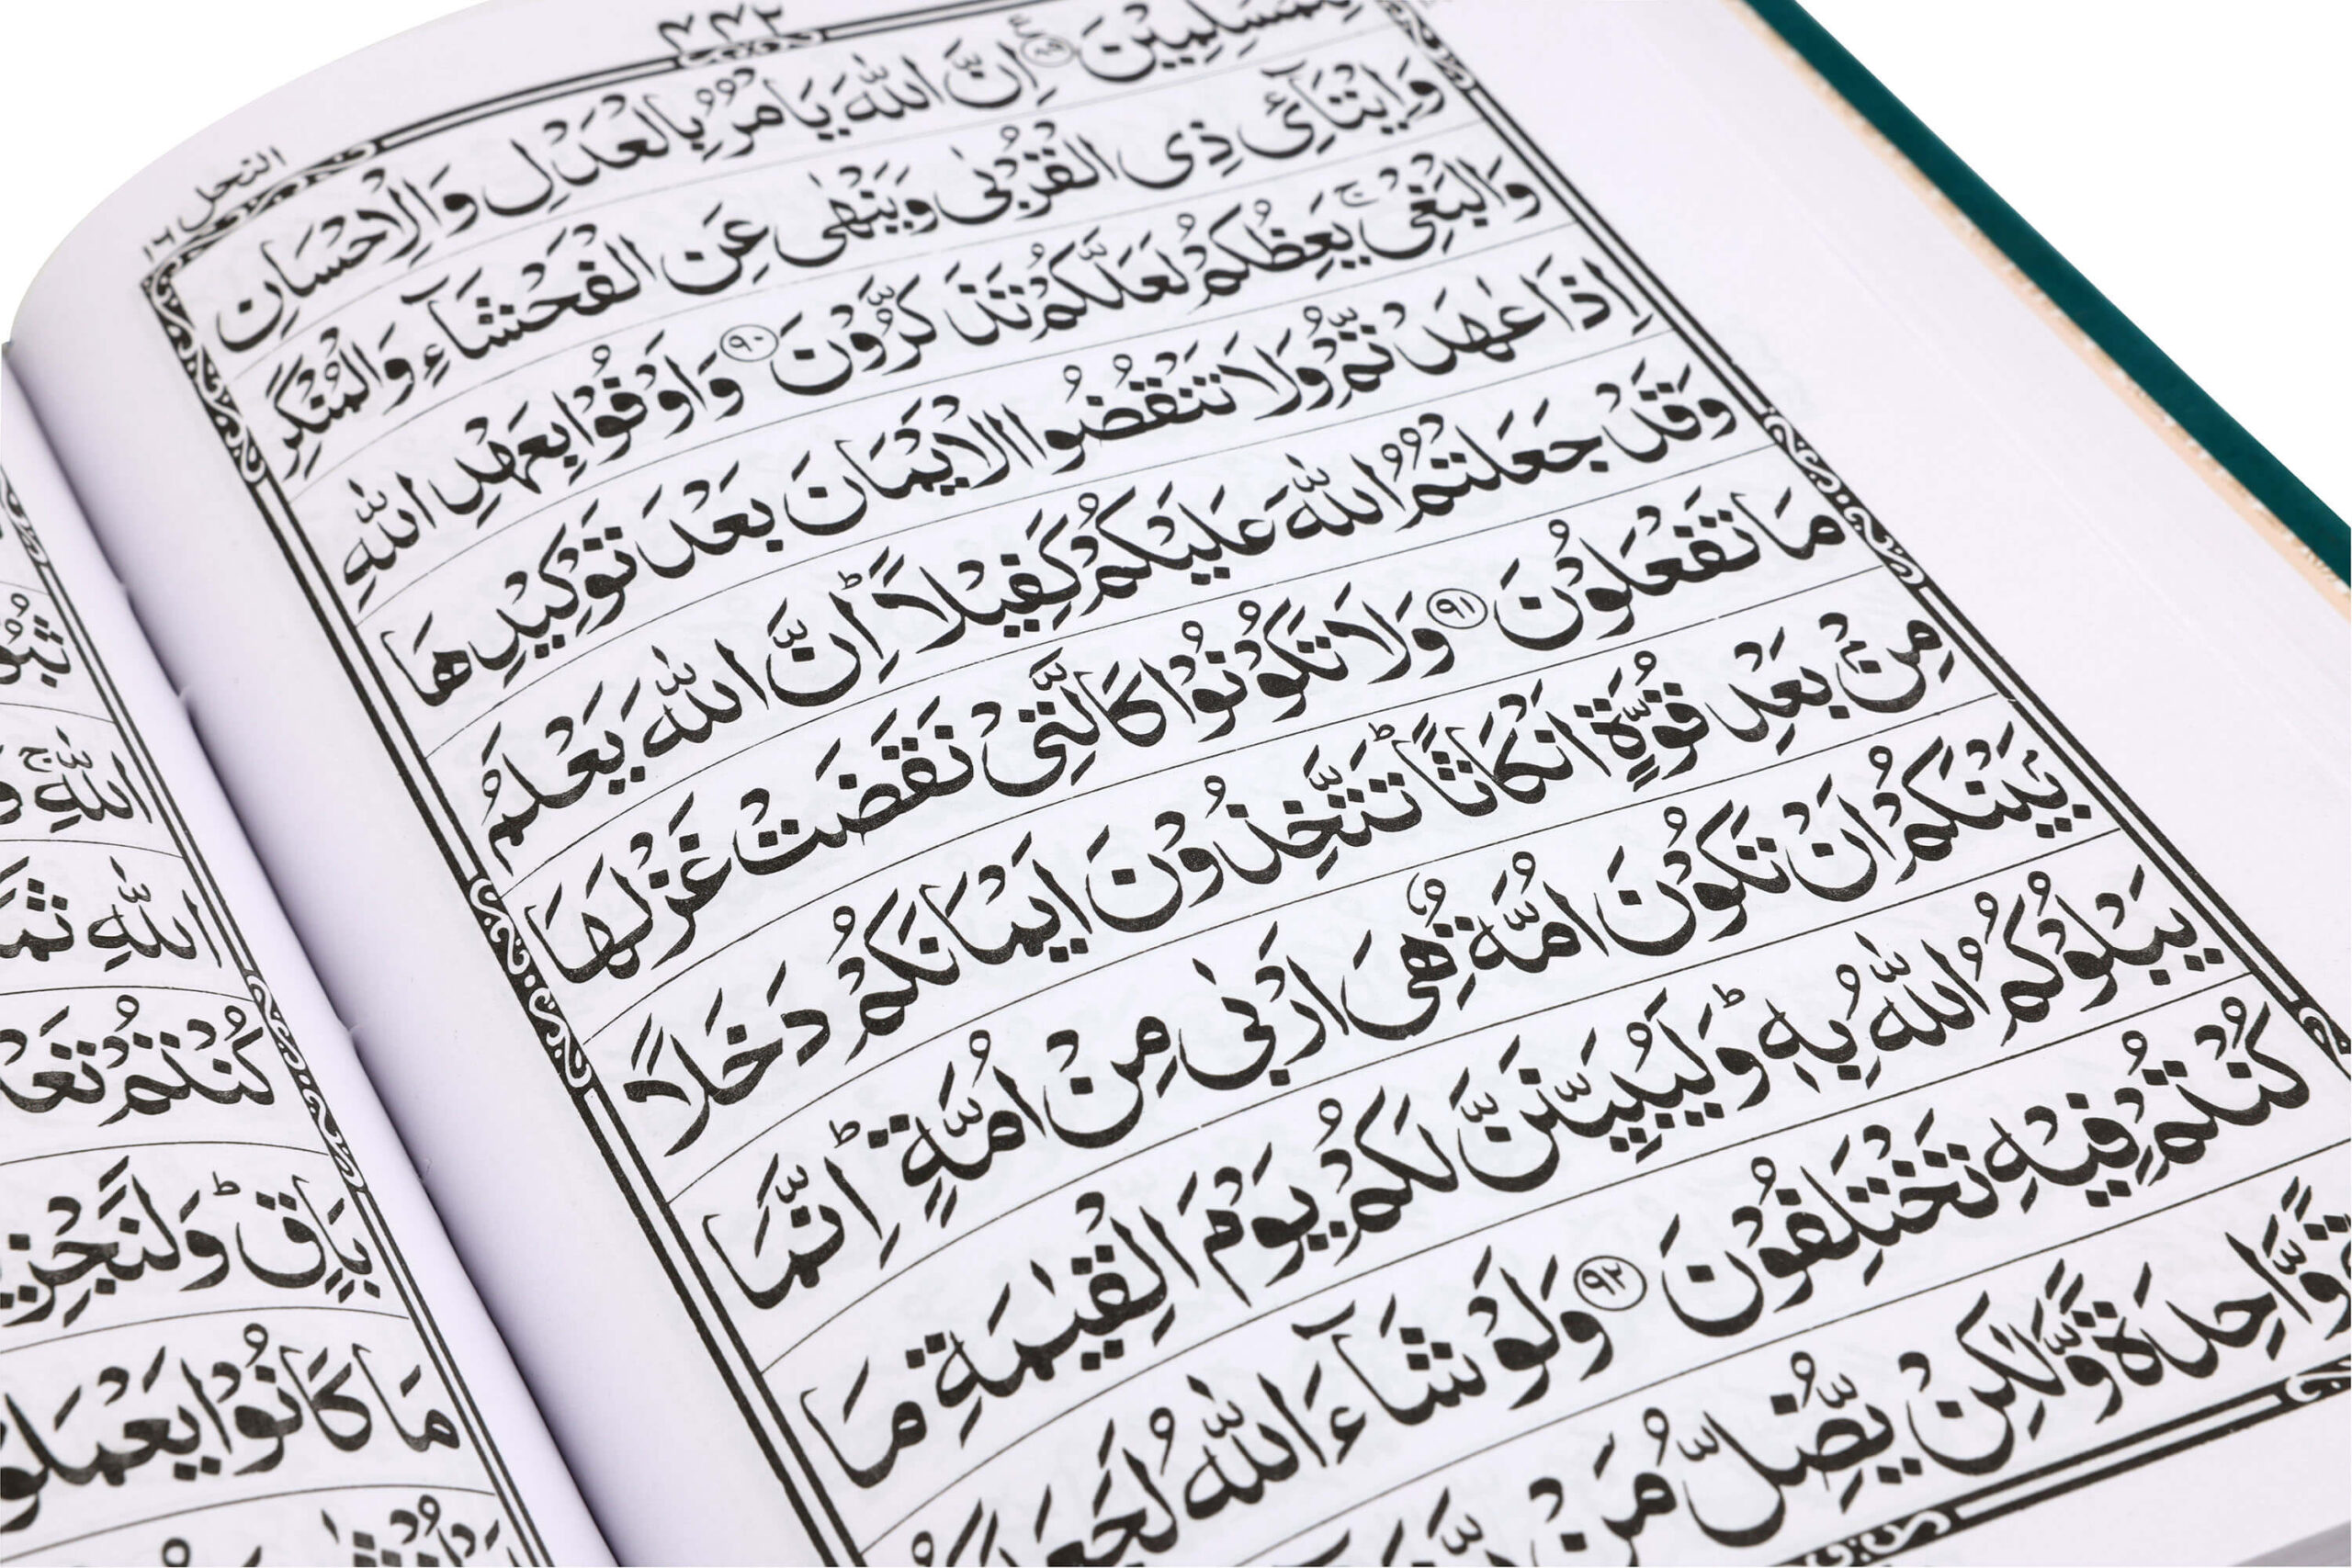 ٣٣٢
النحل ١٦
لِلْمُسْلِمِيْنَ ﴿٨٩﴾ اِنَّ اللّٰهَ يَاْمُرُ بِالْعَدْلِ وَالْاِحْسَانِ
وَاِيْتَآئِ ذِى الْقُرْبٰى وَيَنْهٰى عَنِ الْفَحْشَآءِ وَالْمُنْكَرِ
وَالْبَغْىِ ۚ يَعِظُكُمْ لَعَلَّكُمْ تَذَكَّرُوْنَ ﴿٩٠﴾ وَاَوْفُوْا بِعَهْدِ اللّٰهِ
اِذَا عٰهَدْتُّمْ وَلَا تَنْقُضُوا الْاَيْمَانَ بَعْدَ تَوْكِيْدِهَا
وَقَدْ جَعَلْتُمُ اللّٰهَ عَلَيْكُمْ كَفِيْلًا ؕ اِنَّ اللّٰهَ يَعْلَمُ
مَا تَفْعَلُوْنَ ﴿٩١﴾ وَلَا تَكُوْنُوْا كَالَّتِىْ نَقَضَتْ غَزْلَهَا
مِنْۢ بَعْدِ قُوَّةٍ اَنْكَاثًا ؕ تَتَّخِذُوْنَ اَيْمَانَكُمْ دَخَلًاۢ
بَيْنَكُمْ اَنْ تَكُوْنَ اُمَّةٌ هِىَ اَرْبٰى مِنْ اُمَّةٍ ؕ اِنَّمَا
يَبْلُوْكُمُ اللّٰهُ بِهٖ ؕ وَلَيُبَيِّنَنَّ لَكُمْ يَوْمَ الْقِيٰمَةِ مَا
كُنْتُمْ فِيْهِ تَخْتَلِفُوْنَ ﴿٩٢﴾ وَلَوْ شَآءَ اللّٰهُ لَجَعَلَكُمْ
وَّاحِدَةً وَّلٰكِنْ يُّضِلُّ مَنْ
اللّٰهِ ۚ
اللّٰهِ
كُنْتُمْ
بَاقٍ ؕ وَلَنَجْزِيَنَّ
مَا كَانُوْا يَعْمَلُوْنَ